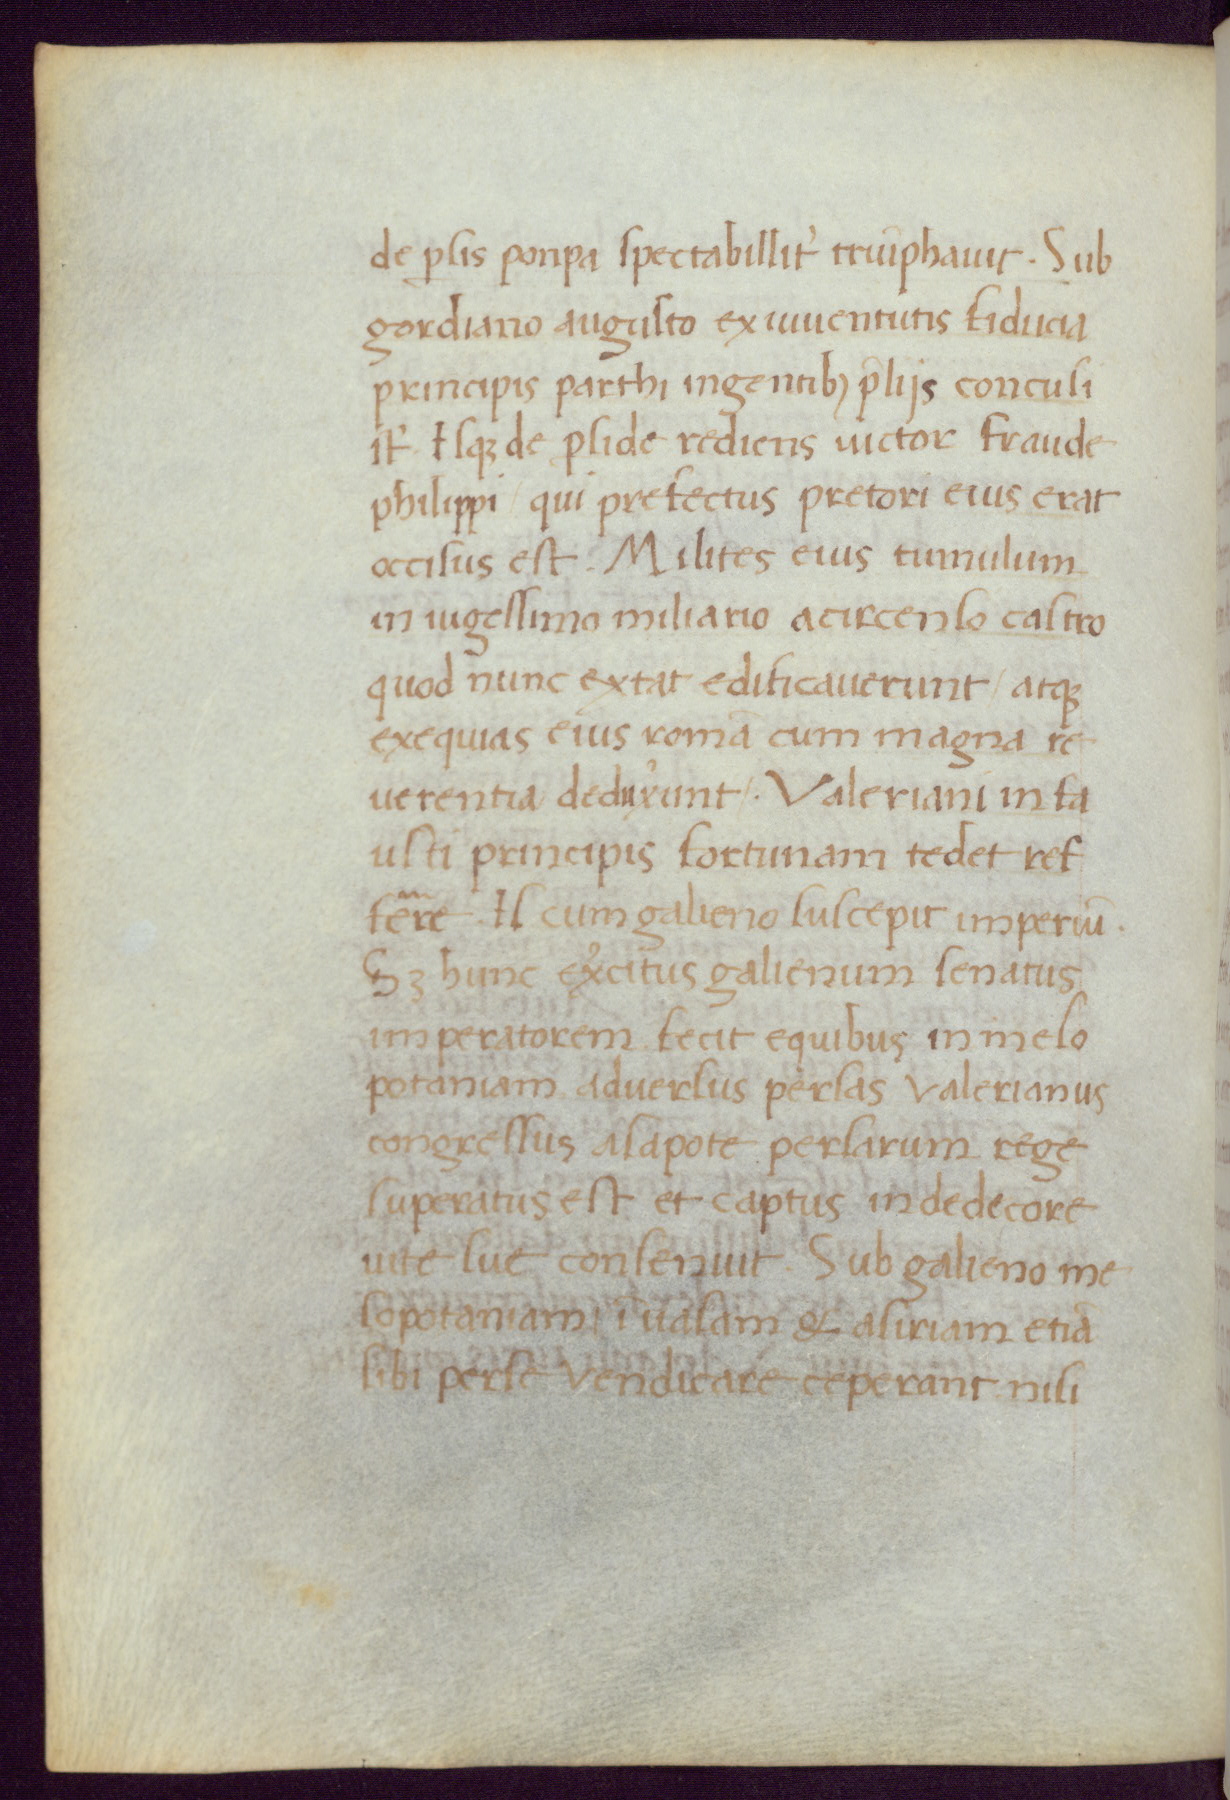 de ꝑsis ponpa spectabillit᾽ triūphauit. Sub
gordiano augusto ex iuuentutis fiducia
principis parthi ingentibꝫ p̄lijs conculi
st᾽. Isqꝫ de ꝑside rediens uictor fraude
philippi / qui prefectus pretori eius erat
occisus est. Milites eius tumulum
in uigessimo miliario a circenso castro
quod nunc extat edificauerunt / atqꝫ
exequias eius romā cum magna re
uerentia deduxerunt /. Valeriani infa
usti principis fortunam tedet ref
ferre. Is cum galieno suscepit imperiū.
Sꝫ hunc ex᾽citus galienum senatus
imperatorem fecit equibus in meso
potaniam aduersus persas Valerianus
congressus a sapote persarum rege
superatus est et captus in dedecore
uite sue consenuit. Sub galieno me
sopotaniam ī uasam & asiriam etiā
sibi perse Vendicare ceperant nisi